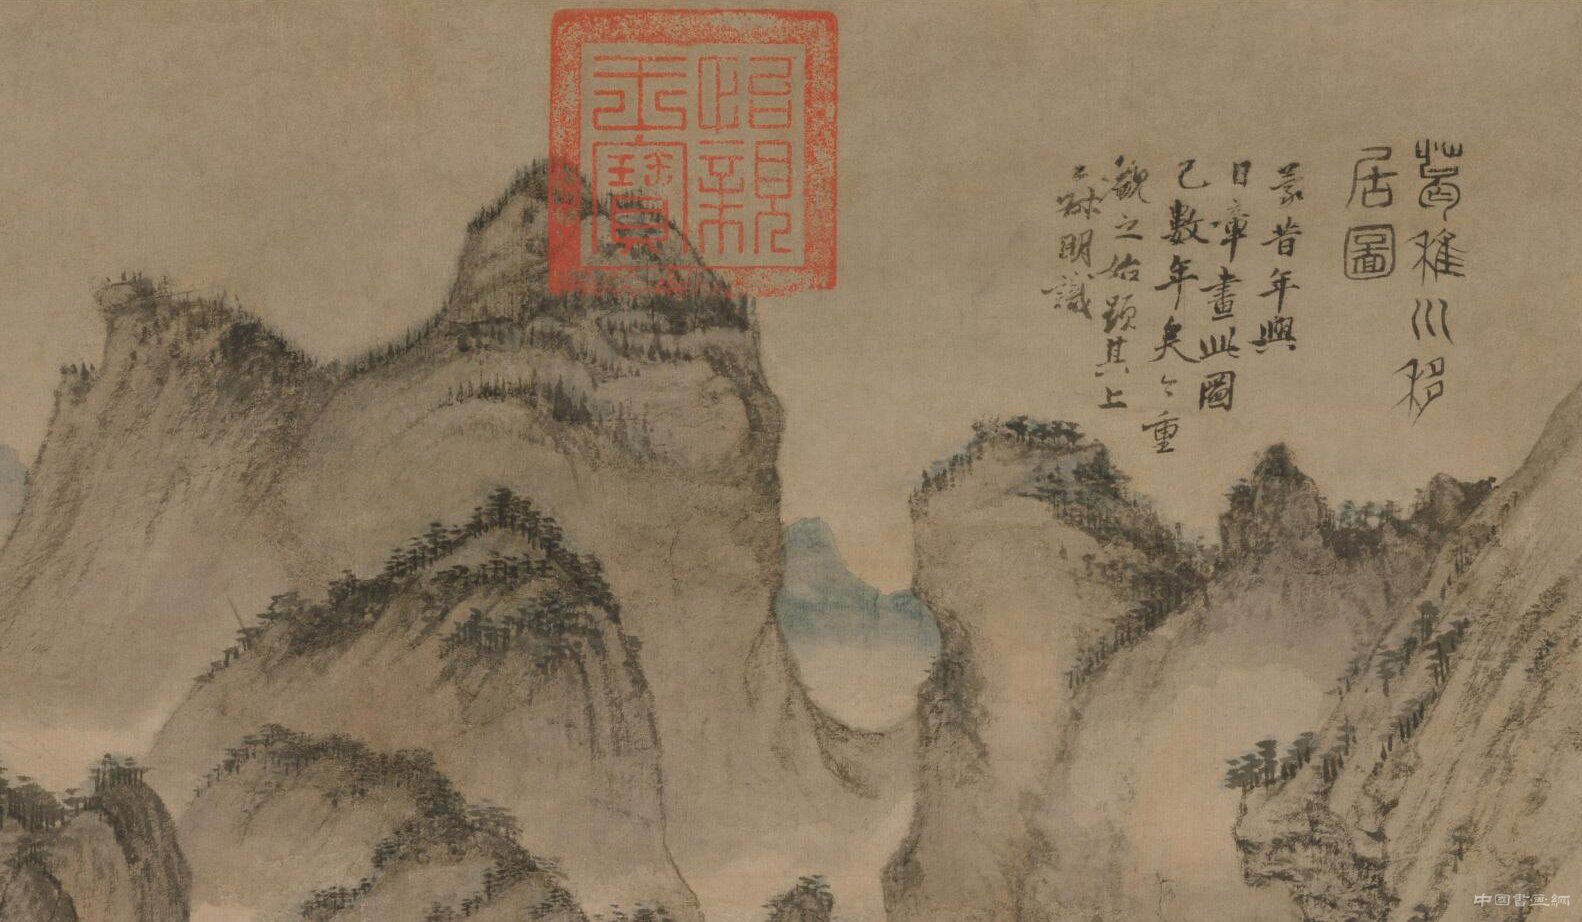 葛稚川移
居圖
蒙昔年與
日章畫此圖
已數年矣今重
觀之始題其上
王叔明識
怡親
王寶
中国書画網